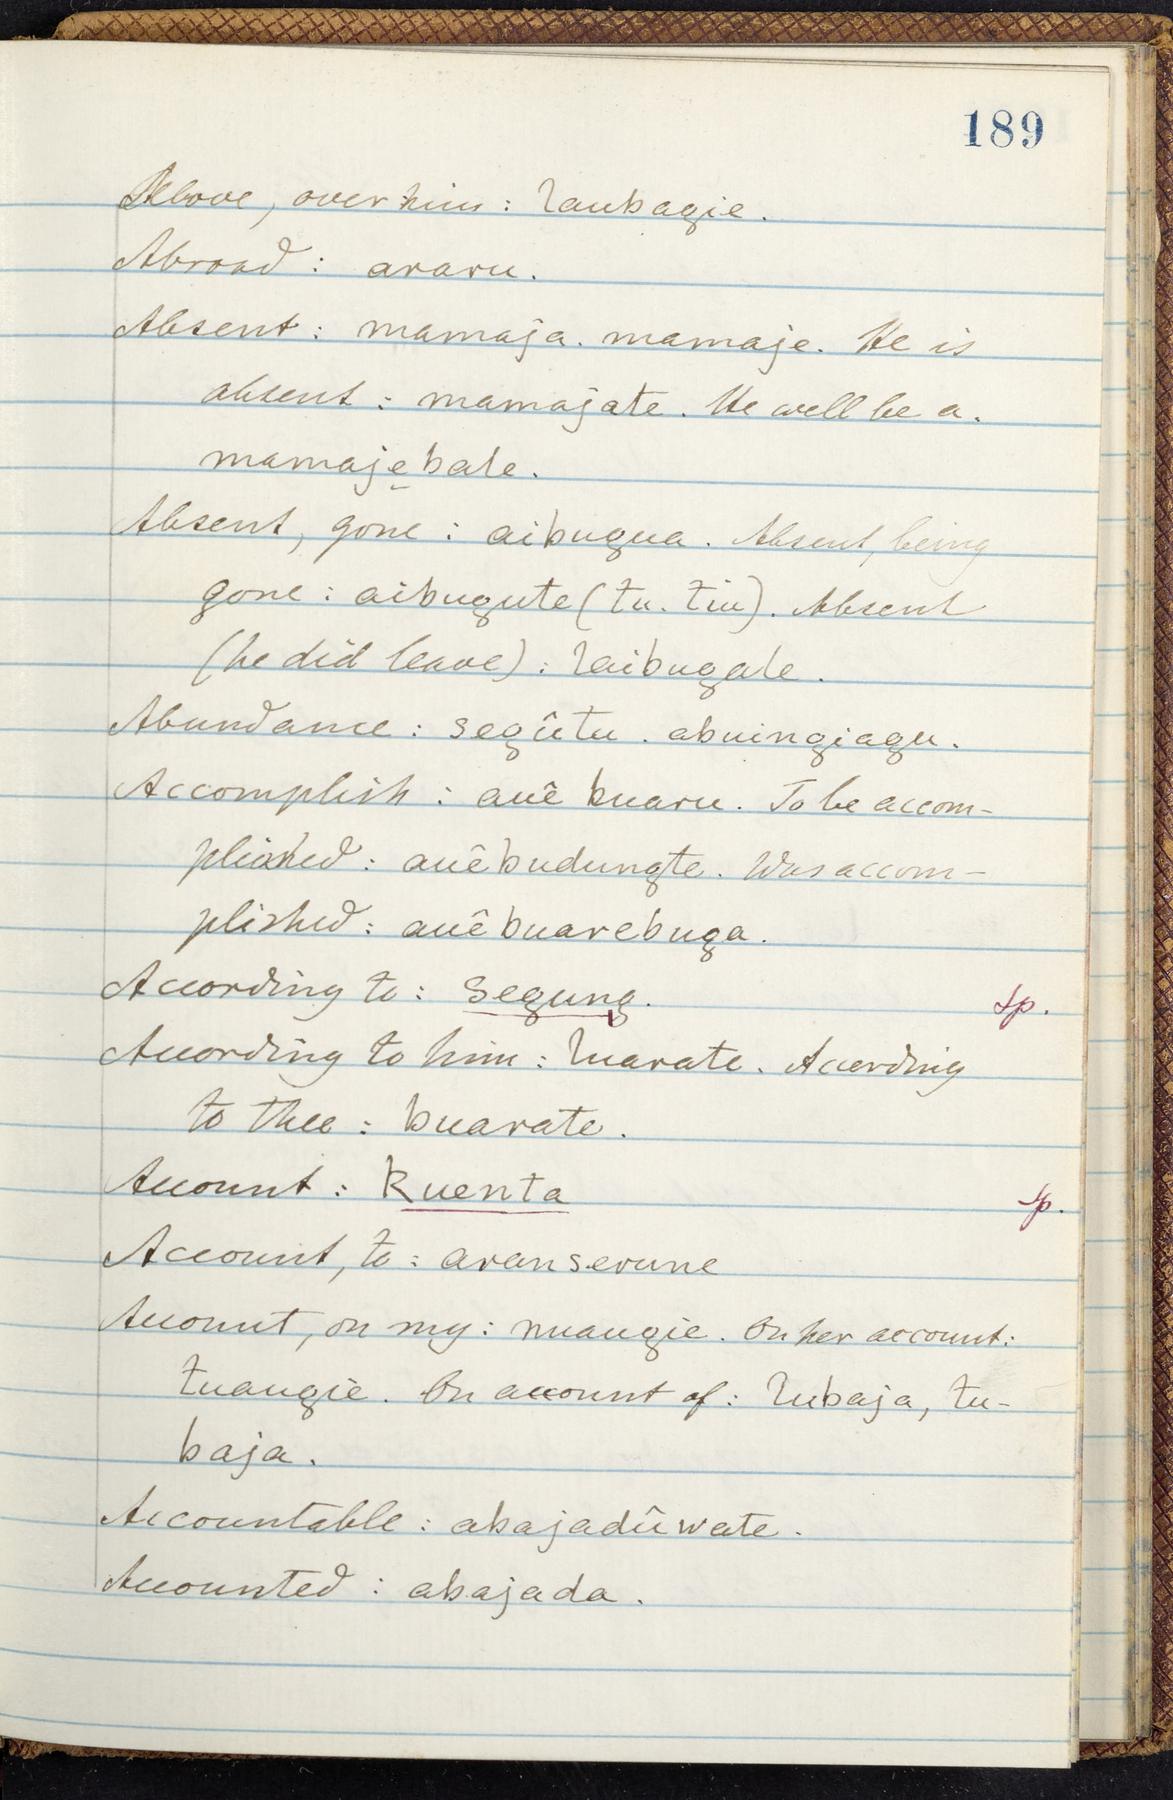 189
Above, over him : laubagie.
Abroad : araru.
Absent : mamaja. mamaje. He is
absent : mamajate. He well be a.
mamajebale.
Absent, gone : aibugua. Absent, being
gone : aibugute (tu. tiu). Absent
(he did leave) : laibugale.
Abundance : segûtu. abuingiagu.
Accomplish : auê buaru. To be accom-
plished : auêbudungte. Was accom-
plished : auêbuarebuga.
According to : segung. sp.
According to him : luarate. According
to thee : buarate.
Account : kuenta sp.
Account, to : aranserune
Account, on my : nuaugie. On her account :
tuaugie. On account of : lubaja, tu-
baja.
Accountable : abajadûwate.
Accounted : abajada.